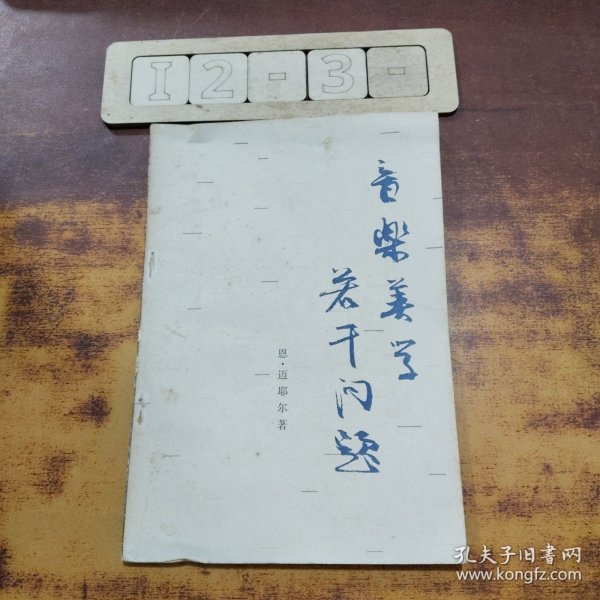 I2-3-
音樂美学
若干问题
恩·迈耶尔著
孔夫子旧书网
www.kongfz.com